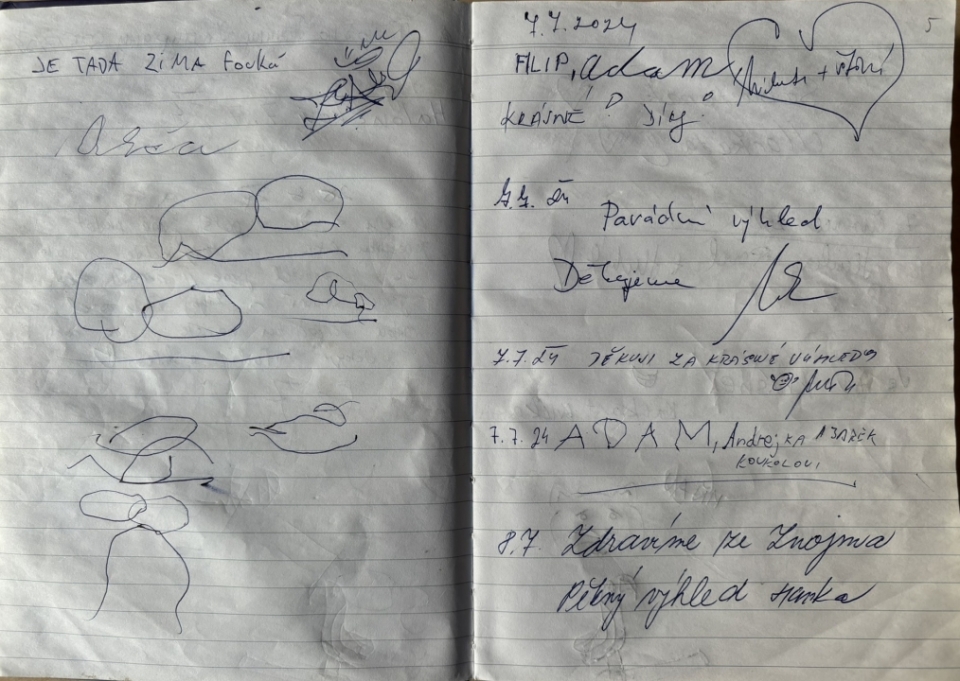 JE TADA ZIMA Fouká
7.7.2024
FILIP, Adam
KRÁSNÉ
7.7. 24
Parádní výhled
Děkujeme
7.7.24 DĚKUJI ZA KRÁSNÉ VÝHLEDY
7.7.24 ADAM, Andrejka A JAREK
KOUKOLOVI
8.7. Zdravíme ze Znojma
Pěkný výhled Hanka
5